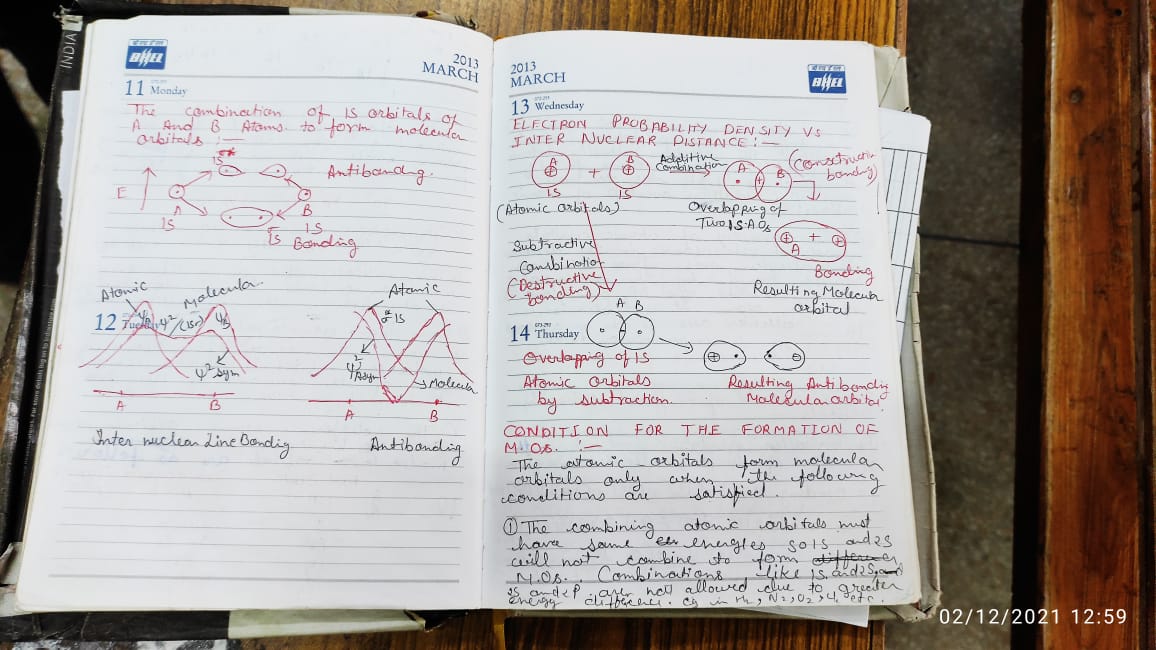 INDIA
BHEL
2013
MARCH
11 Monday
The combination of 1S orbitals of
A And B Atoms to form molecular
orbitals :—
1S
Antibondg.
E
A
B
1S
1S
Bonding
Atomic
Molecular
12 Tuesday
ψ² Sym
A B
Inter nuclear Line Bondig
Atomic
σ* 1S
ψ² Asym
Molecular
A B
Antibonding
2013
MARCH
BHEL
13 Wednesday
ELECTRON PROBABILITY DENSITY VS
INTER NUCLEAR DISTANCE :—
A + B
1S 1S
Additive
Combination
A B
(Constructive
bonding)
(Atomic orbitals)
Overlapping of
Two 1S A.Os
A +
Bonding
Resulting Molecular
orbital
Subtractive
Combination
(Destructive
bonding)
A B
14 Thursday
Overlapping of 1S
Atomic orbitals
by subtraction.
Resulting Antibondg
Molecular orbital
CONDITION FOR THE FORMATION OF
M.Os. :—
The atomic orbitals form molecular
orbitals only when the following
conditions are satisfied.
① The combining atomic orbitals must
have same energies so 1S and 2S
will not combine to form
M.Os. Combinations like 1S and 2S and
2S and 2P are not allowed due to greater
energy difference. eg in H2, N2, O2, etc.
02/12/2021 12:59